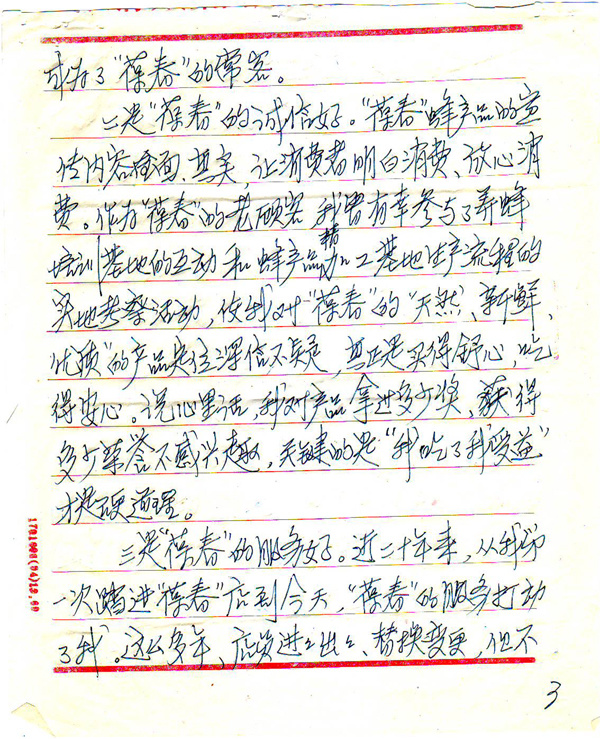 成为了“葆春”的常客。
二是“葆春”的诚信好。“葆春”蜂产品的宣
传内容全面、真实，让消费者明白消费、放心消
费。作为“葆春”的老顾客我曾有幸参与了养蜂
培训基地的互动和蜂产品精加工基地生产流程的
实地考察活动，使我对“葆春”的“天然、新鲜、
优质”的产品定位深信不疑，真正是买得舒心，吃
得安心。说心里话，我对产品拿过多少奖、获得
多少荣誉不感兴趣，关键的是“我吃了我受益”
才是硬道理。
三是“葆春”的服务好。近二十年来，从我第
一次踏进“葆春”店到今天，“葆春”的服务打动
了我。这么多年、店员进进出出、替换变更，但不
1701008(84)12.60
3